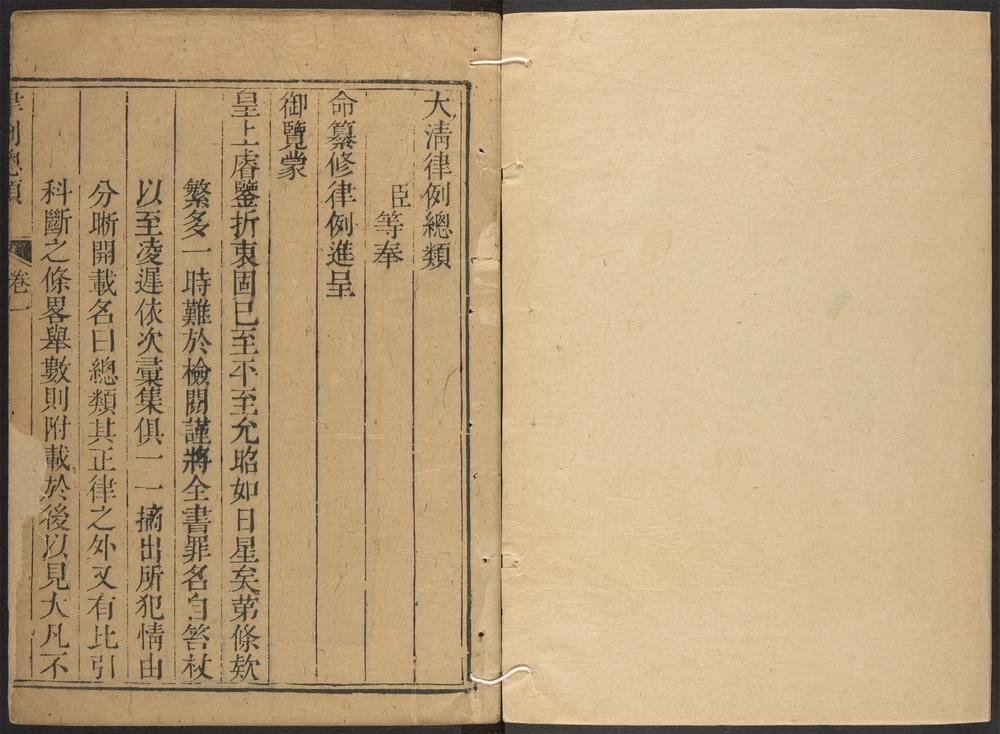 大清律例總類
臣等奉
命纂修律例進呈
御覽蒙
皇上睿鑒折衷固已至平至允昭如日星矣第條欵
繁多一時難於檢閱謹將全書罪名自笞杖
以至凌遲依次彙集俱一一摘出所犯情由
分晰開載名曰總類其正律之外又有比引
科斷之條畧舉數則附載於後以見大凡不
律例總類 卷一